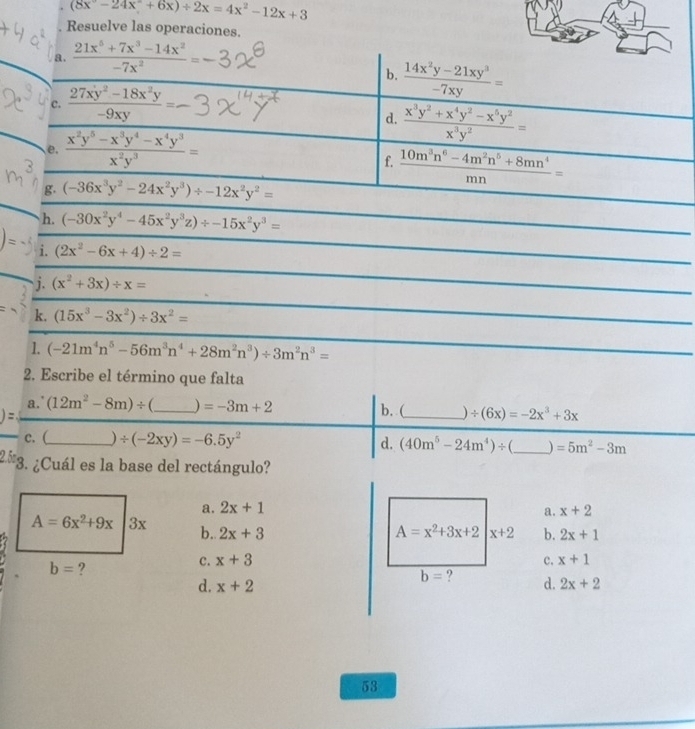 (8x³ - 24x² + 6x) ÷ 2x = 4x² - 12x + 3
. Resuelve las operaciones.
a. (21x⁵ + 7x³ - 14x²) / (-7x²) = -3x⁸
b. (14x²y - 21xy³) / (-7xy) =
c. (27xy² - 18x²y) / (-9xy) = -3x¹⁴y⁺⁷
d. (x³y² + x⁴y² - x⁵y²) / (x³y²) =
e. (x²y⁵ - x³y⁴ - x⁴y³) / (x²y³) =
f. (10m³n⁶ - 4m²n⁵ + 8mn⁴) / (mn) =
g. (-36x³y² - 24x²y³) ÷ -12x²y² =
h. (-30x²y⁴ - 45x²y³z) ÷ -15x²y³ =
i. (2x² - 6x + 4) ÷ 2 =
j. (x² + 3x) ÷ x =
k. (15x³ - 3x²) ÷ 3x² =
l. (-21m⁴n⁵ - 56m³n⁴ + 28m²n³) ÷ 3m²n³ =
2. Escribe el término que falta
a. (12m² - 8m) ÷ (_____) = -3m + 2
b. (_____) ÷ (6x) = -2x³ + 3x
c. (_____) ÷ (-2xy) = -6.5y²
d. (40m⁵ - 24m⁴) ÷ (_____) = 5m² - 3m
3. ¿Cuál es la base del rectángulo?
A = 6x²+9x 3x
b = ?
a. 2x + 1
b. 2x + 3
c. x + 3
d. x + 2
A = x²+3x+2 x+2
b = ?
a. x + 2
b. 2x + 1
c. x + 1
d. 2x + 2
53